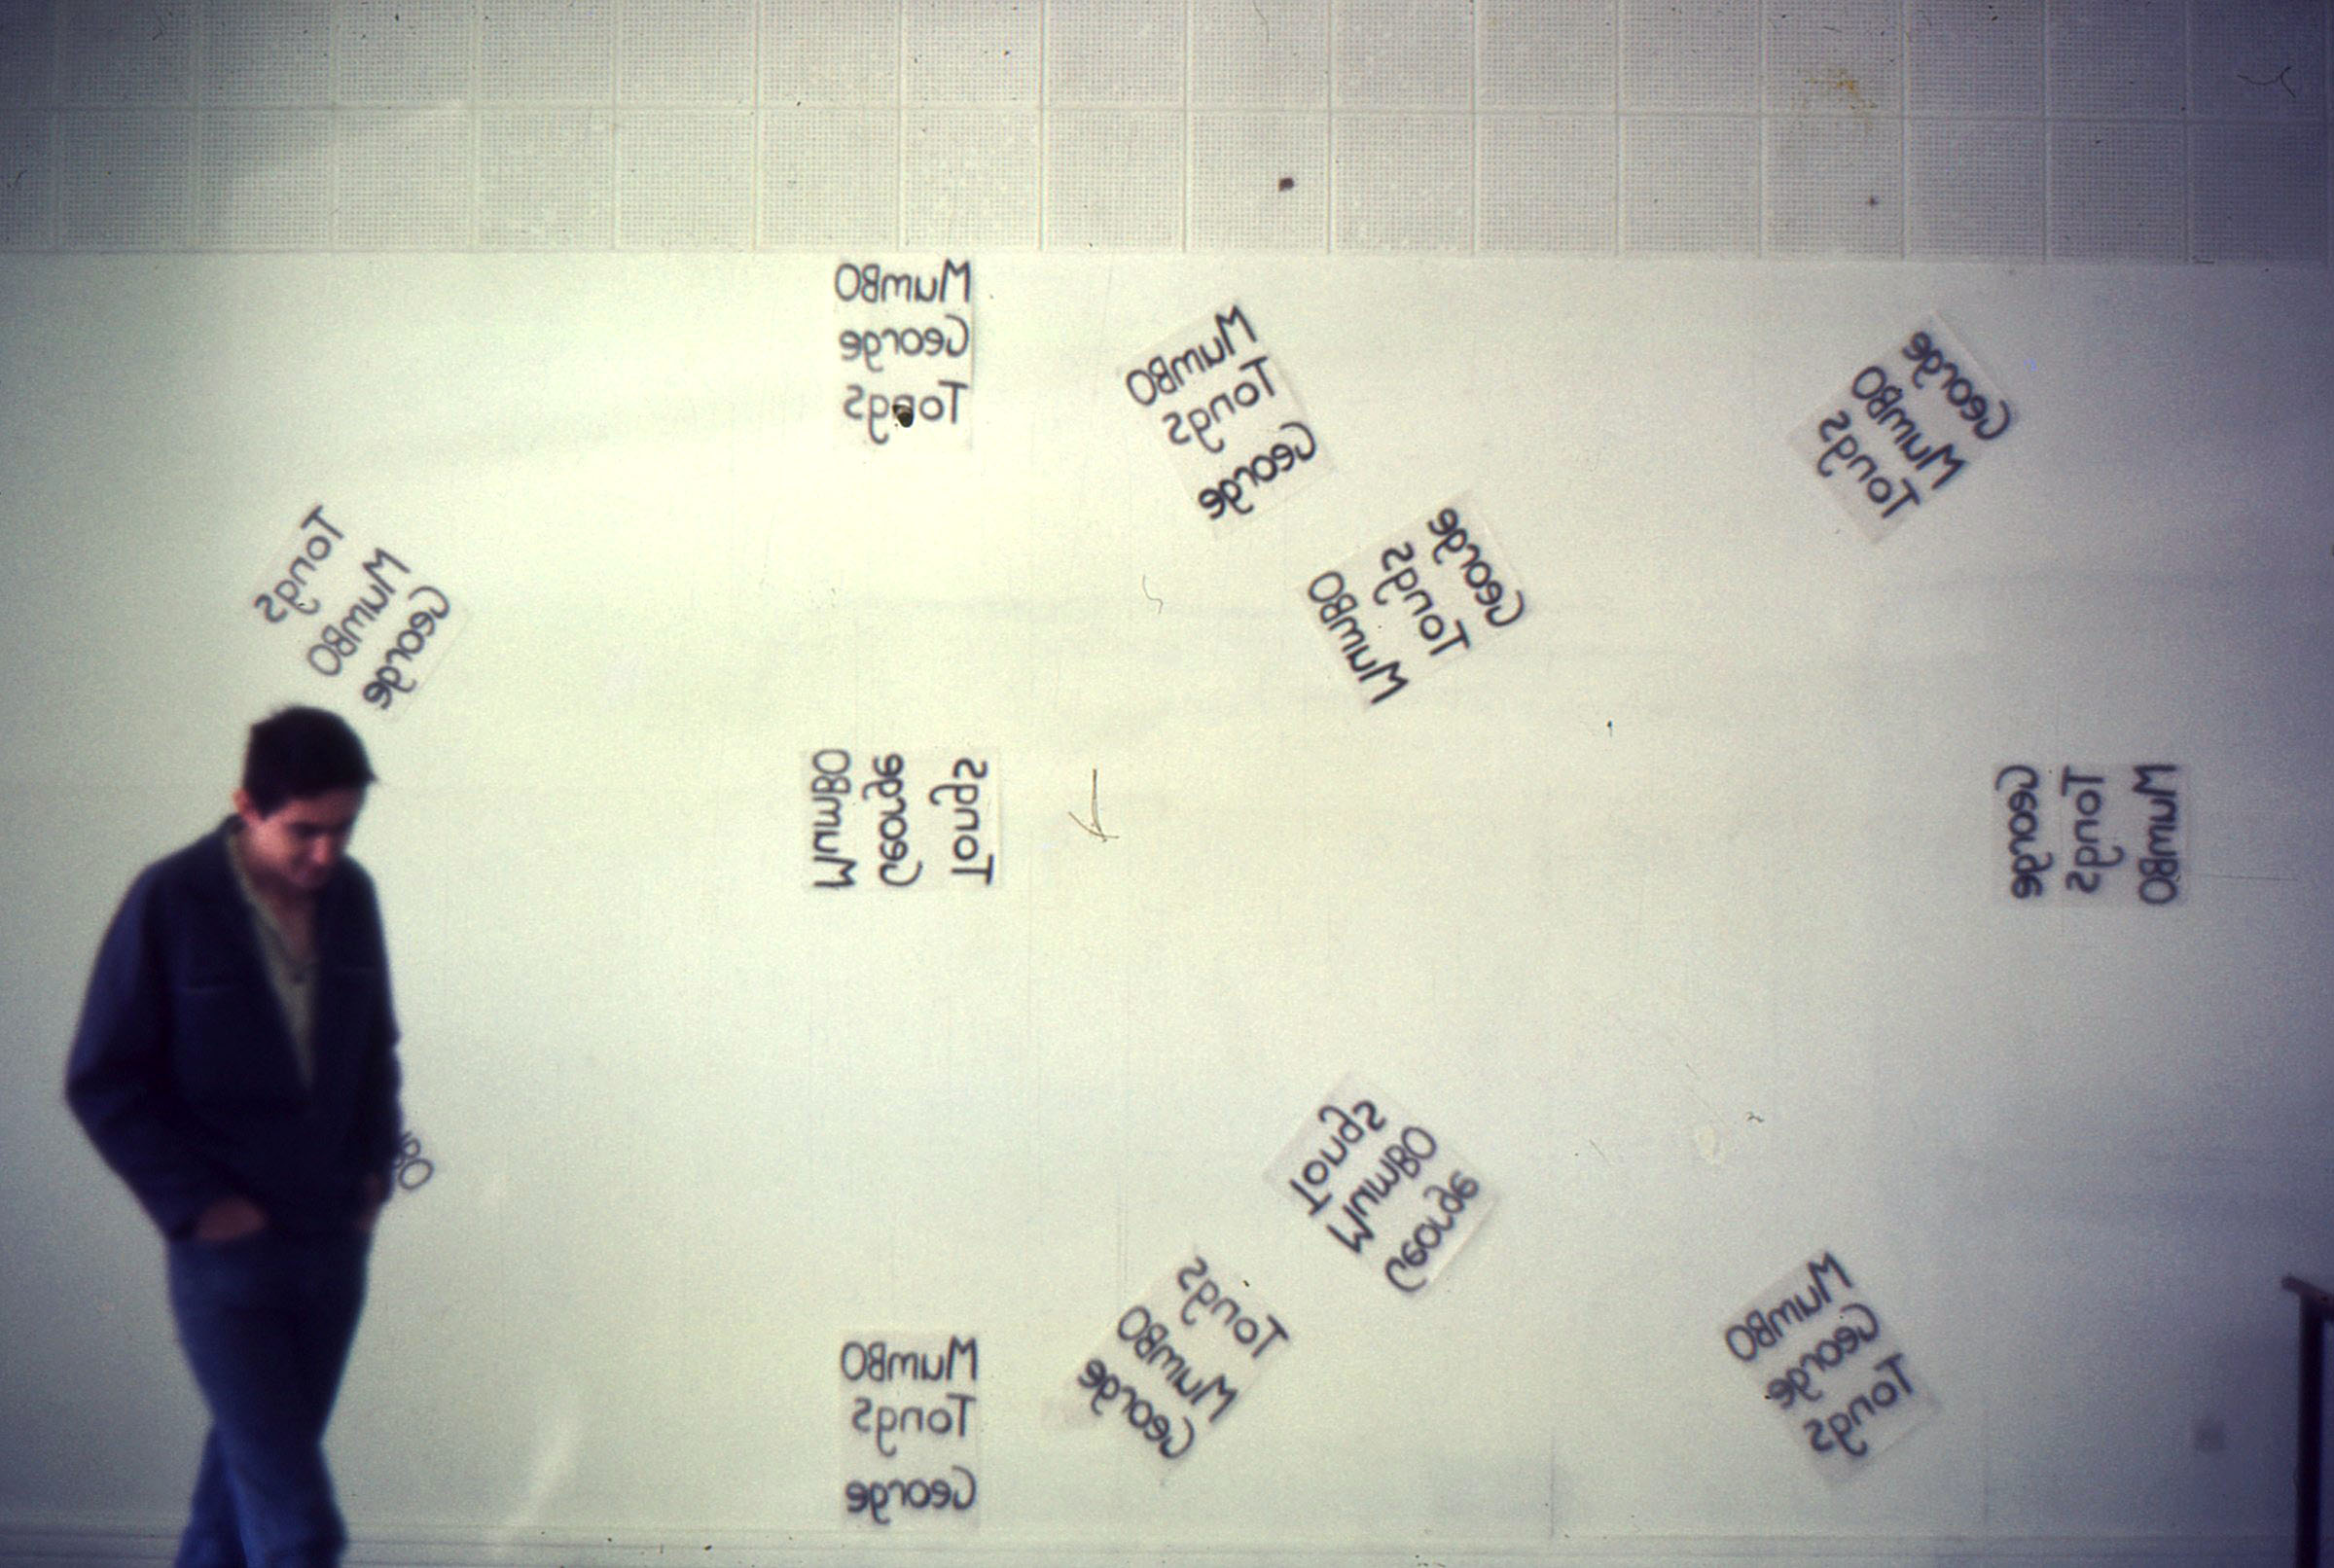 MumBO
George
Tongs
MumBO
Tongs
George
George
MumBO
Tongs
Tongs
MumBO
George
George
Tongs
MumBO
Tongs
George
MumBO
George
Tongs
MumBO
George
MumBO
Tongs
Tongs
MumBO
George
MumBO
George
Tongs
MumBO
Tongs
George